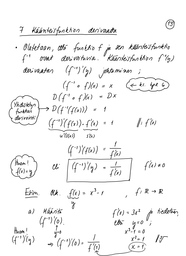 19
7 Käänteisfunktion derivaatta
• Oletetaan, että funktio f ja sen käänteisfunktio
f⁻¹ ovat derivoituvia. Käänteisfunktion f⁻¹(y)
derivaatan (f⁻¹)'(y) johtaminen:
(f⁻¹ ∘ f)(x) = x
D(f⁻¹ ∘ f)(x) = Dx
Yhdistetyn
funktion
derivointi
D(f⁻¹(f(x))) = 1
(f⁻¹)'(f(x)) · f'(x) = 1 ‖ : f'(x)
(f⁻¹)'(f(x)) = 1/f'(x)
Huom!
f(x) = y
Eli (f⁻¹)'(y) = 1/f'(x) f'(x) ≠ 0
Esim. f(x) = x³ - 1, f: ℝ → ℝ
a) Määritä
(f⁻¹)'(y)
f'(x) = 3x²
x³ - 1 = 0
x³ = 1
x = 1
Huom!
(f⁻¹)'(y)